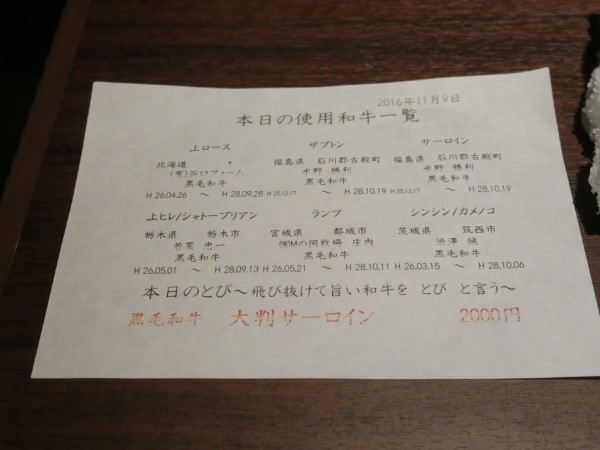 2016年11月9日
本日の使用和牛一覧
上ロース ザブトン サーロイン
北海道 福島県 石川郡古殿町 福島県 石川郡古殿町
水野 勝利 水野 勝利
黒毛和牛 黒毛和牛 黒毛和牛
H 26.04.26 ～ H 28.09.28 H 25.12.17 ～ H 28.10.19 H 25.12.17 ～ H 28.10.19
上ヒレ/シャトーブリアン ランプ シンシン/カメノコ
栃木県 栃木市 宮城県 都城市 茨城県 筑西市
若菜 忠一 ㈲Mの国牧場 庄内 渋澤 誠
黒毛和牛 黒毛和牛 黒毛和牛
H 26.05.01 ～ H 28.09.13 H 26.05.21 ～ H 28.10.11 H 26.03.15 ～ H 28.10.06
本日のとび～飛び抜けて旨い和牛を とび と言う～
黒毛和牛 大判サーロイン 2000円